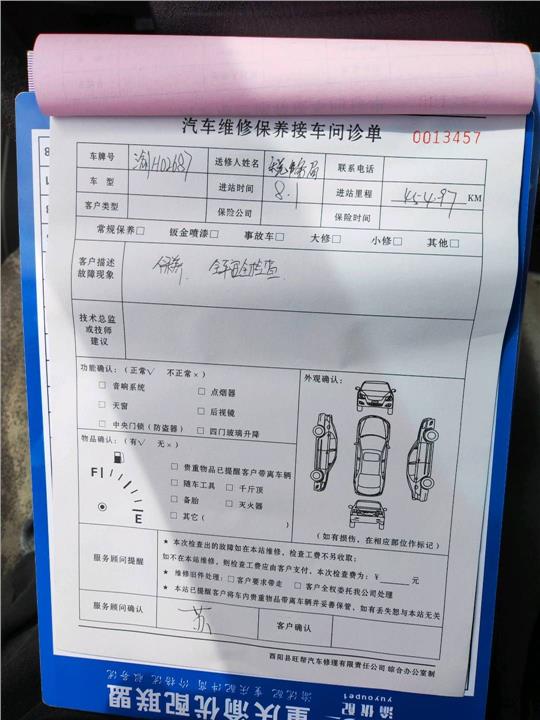 汽车维修保养接车问诊单
0013457
车牌号 渝H02687 送修人姓名 税务局 联系电话
车 型 进站时间 8.1 进站里程 45497 KM
客户类型 保险公司 保险时间
常规保养□ 钣金喷漆□ 事故车□ 大修□ 小修□ 其他□
客户描述
故障现象
保养、全车安全检查
技术总监
或技师
建议
功能确认：（正常√ 不正常×） 外观确认：
□ 音响系统 □ 点烟器
□ 天窗 □ 后视镜
□ 中央门锁（防盗器） □ 四门玻璃升降
物品确认：（有√ 无×）
F E
□ 贵重物品已提醒客户带离车辆
□ 随车工具 □ 千斤顶
□ 备胎 □ 灭火器
□ 其它（ ）
（如有损伤，在相应部位作标记）
服务顾问提醒
★ 本次检查出的故障如在本站维修，检查工费不另收取；
如不在本站维修，则检查工费应由客户支付，本次检查费为：￥ 元
★ 维修旧件处理：□ 客户要求带走 □ 客户全权委托我公司处理
★ 本站已提醒客户将车内贵重物品带离车辆并妥善保管，如有丢失恕与本站无关
服务顾问确认 客户确认
酉阳县旺帮汽车修理有限责任公司 综合办公室制
重庆渝优配联盟
渝优配
yuyoupei